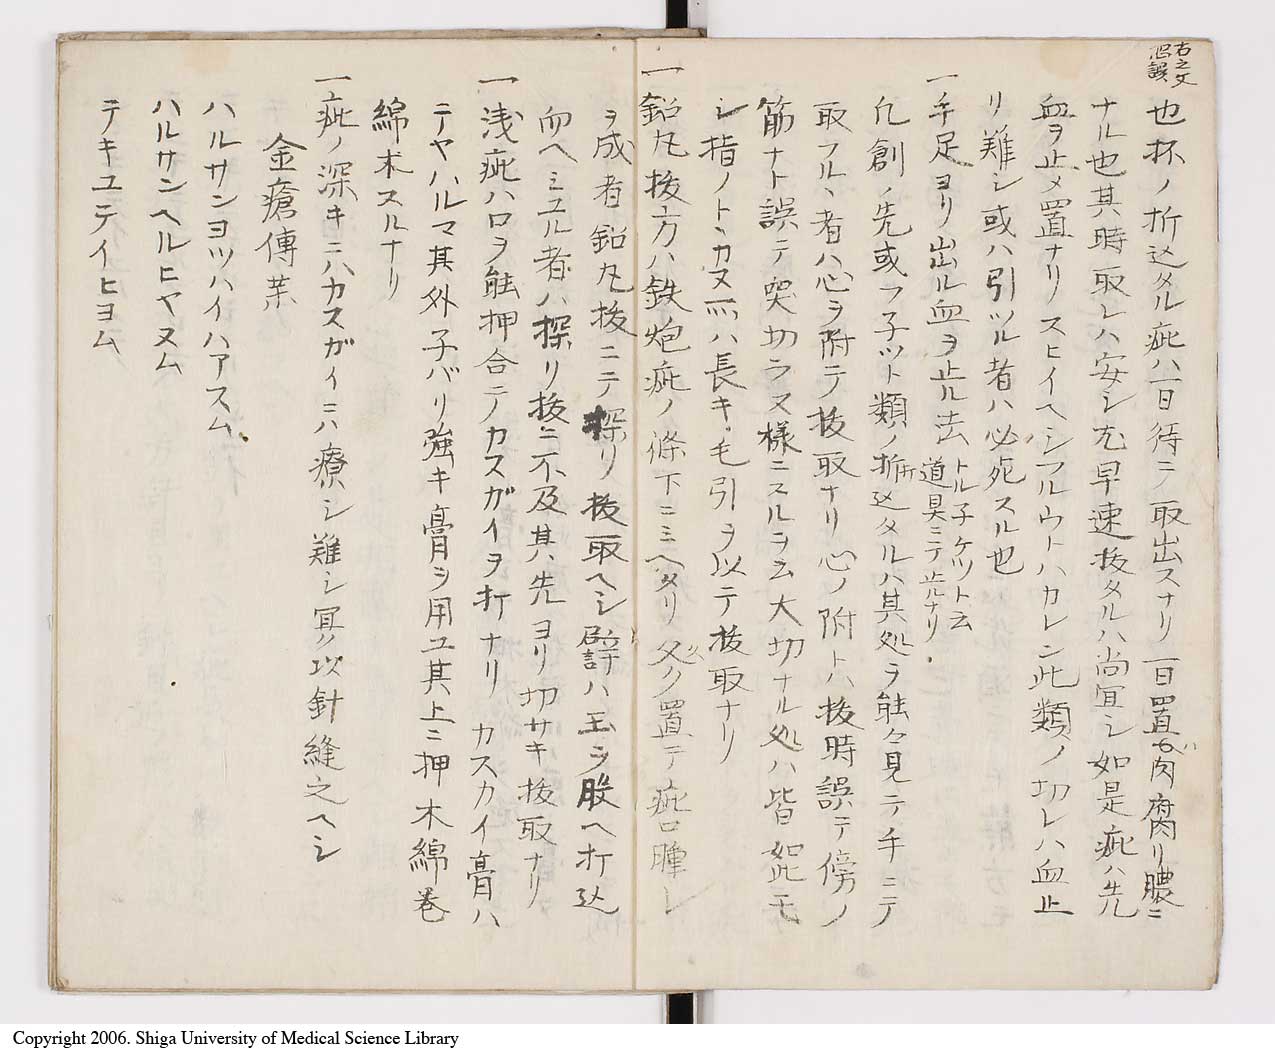 右之文
也杯ノ折込タル疵ハ一日待ニ取出スナリ一日置ハ肉腐リ膿ニ
ナル也其時取レハ安シ尤早速抜タルハ尚宜シ如是疵ハ先
血ヲ止メ置ナリスヒイヘシフルウトハカレン此類ノ切レハ血止
リ難シ或ハ引ツル者ハ必死スル也
一手足ヨリ出ル血ヲ止ル法
トル子ケツト云
道具ニテ止ルナリ
凡創ノ先或フ子ツト類ノ折込タルハ其処ヲ能々見テ手ニテ
取フルヽ者ハ心ヲ附テ抜取ナリ心ノ附トハ抜時誤テ傍ノ
筋ナト誤テ突切ラヌ様ニスルヲ云大切ナル処ハ皆如此モ
シ指ノトヽカヌ所ハ長キ毛引ヲ以テ抜取ナリ
一鉛丸抜方ハ鉄炮疵ノ條下ニミヘタリ久ク置テ疵口腫レ
ヲ成者鉛丸抜ニテ探リ抜取ヘシ譬ハ玉ヲ股ヘ打込
而ヘミユル者ハ探リ抜ニ不及其先ヨリ切サキ抜取ナリ
一浅疵ハ口ヲ能押合テカスガイヲ打ナリ カスカイ膏ハ
テヤハルマ其外子バリ強キ膏ヲ用ユ其上ニ押木綿巻
綿木スルナリ
一疵ノ深キニハカスガイニハ療シ難シ冥以針縫之ヘシ
金瘡傳業
ハルサンヨツハイハアスム
ハルサンヘルヒヤヌム
テキユテイヒヨム
Copyright 2006. Shiga University of Medical Science Library